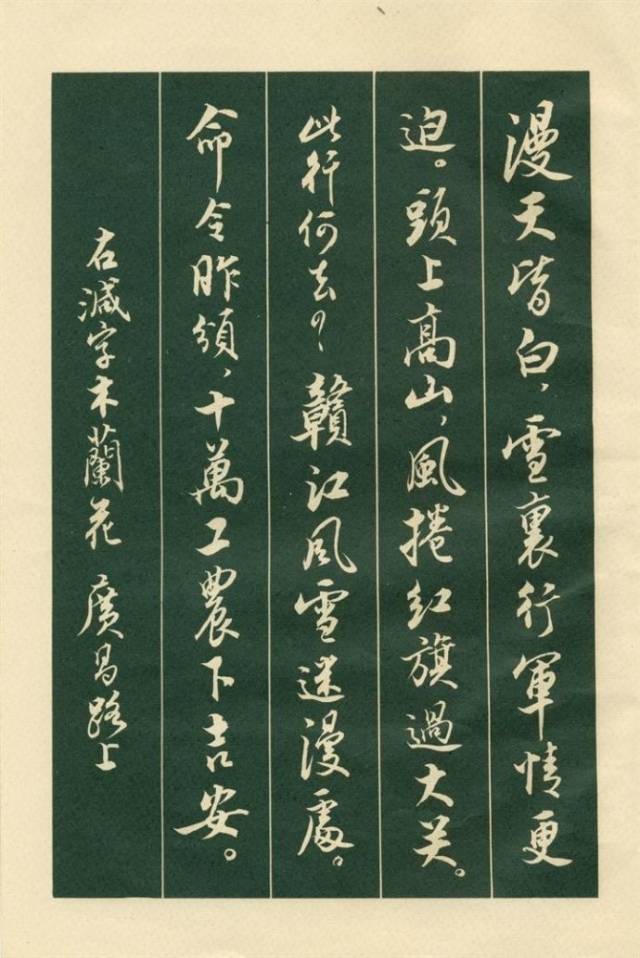 漫天皆白，雪裏行軍情更
迫。頭上高山，風捲紅旗過大关。
此行何去？贛江风雪迷漫處。
命令昨頒，十萬工農下吉安。
右減字木蘭花 廣昌路上